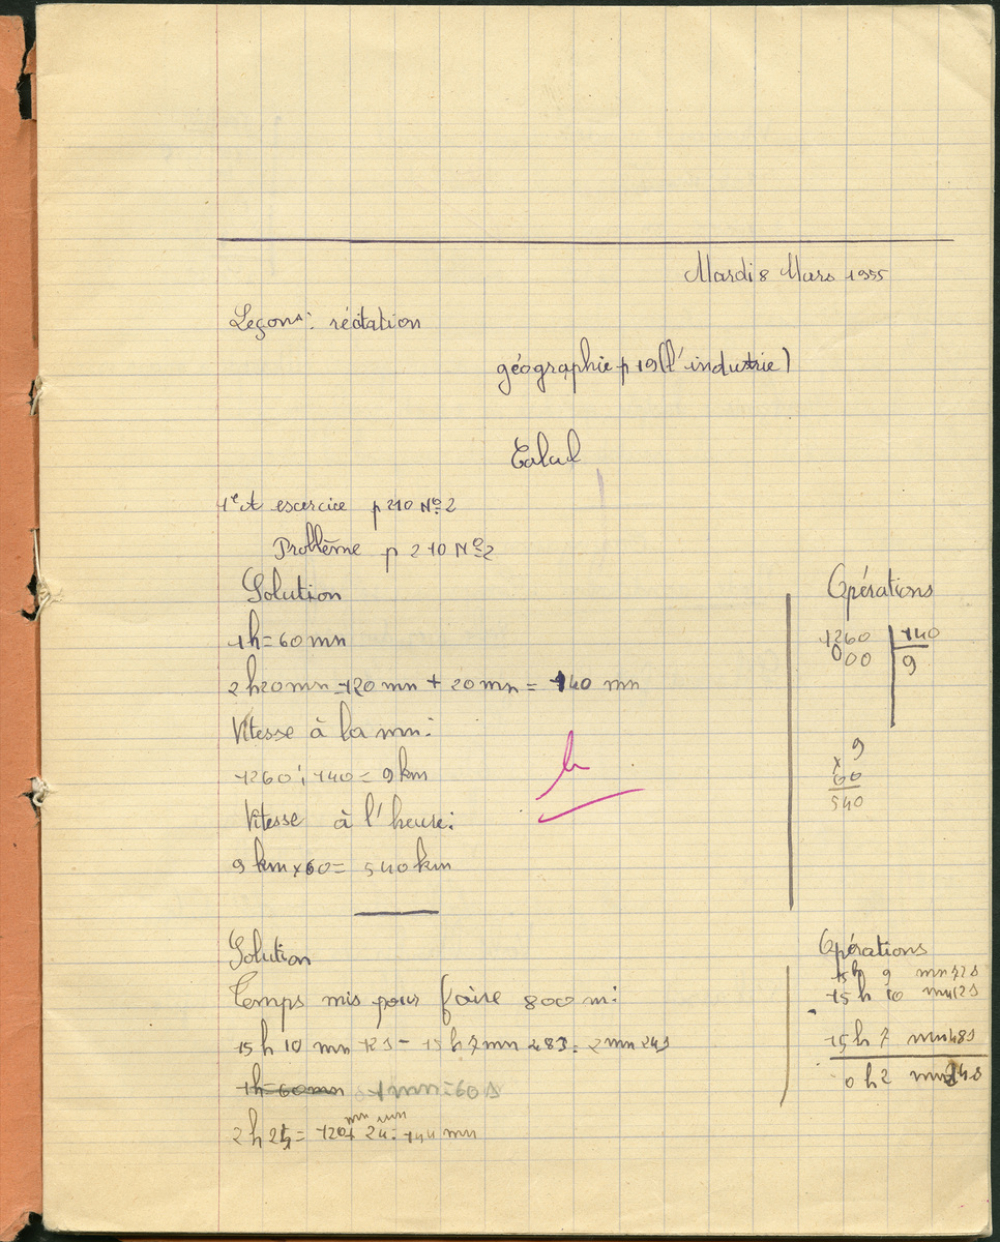 Mardi 8 Mars 1955
Leçons: récitation
géographie p 19 (l'industrie)
Calcul
1e et escercice p 210 Nº 2
Problème p 210 Nº 2
Solution
1h = 60 mn
2h20mn = 120 mn + 20 mn = 140 mn
Vitesse à la mn:
1260 : 140 = 9 km
Vitesse à l'heure:
9 km x 60 = 540 km
Opérations
1260 140
000 9
9
x 60
540
Solution
Temps mis pour faire 800 m:
15 h 10 mn 12s - 15 h 7 mn 48s = 2 mn 24s
1h = 60mn 1mn = 60s
mn mn
2 h 24 = 120 + 24 = 144 mn
Opérations
15h 9 mn 72s
15 h 10 mn 12s
15 h 7 mn 48s
0 h 2 mn 24s